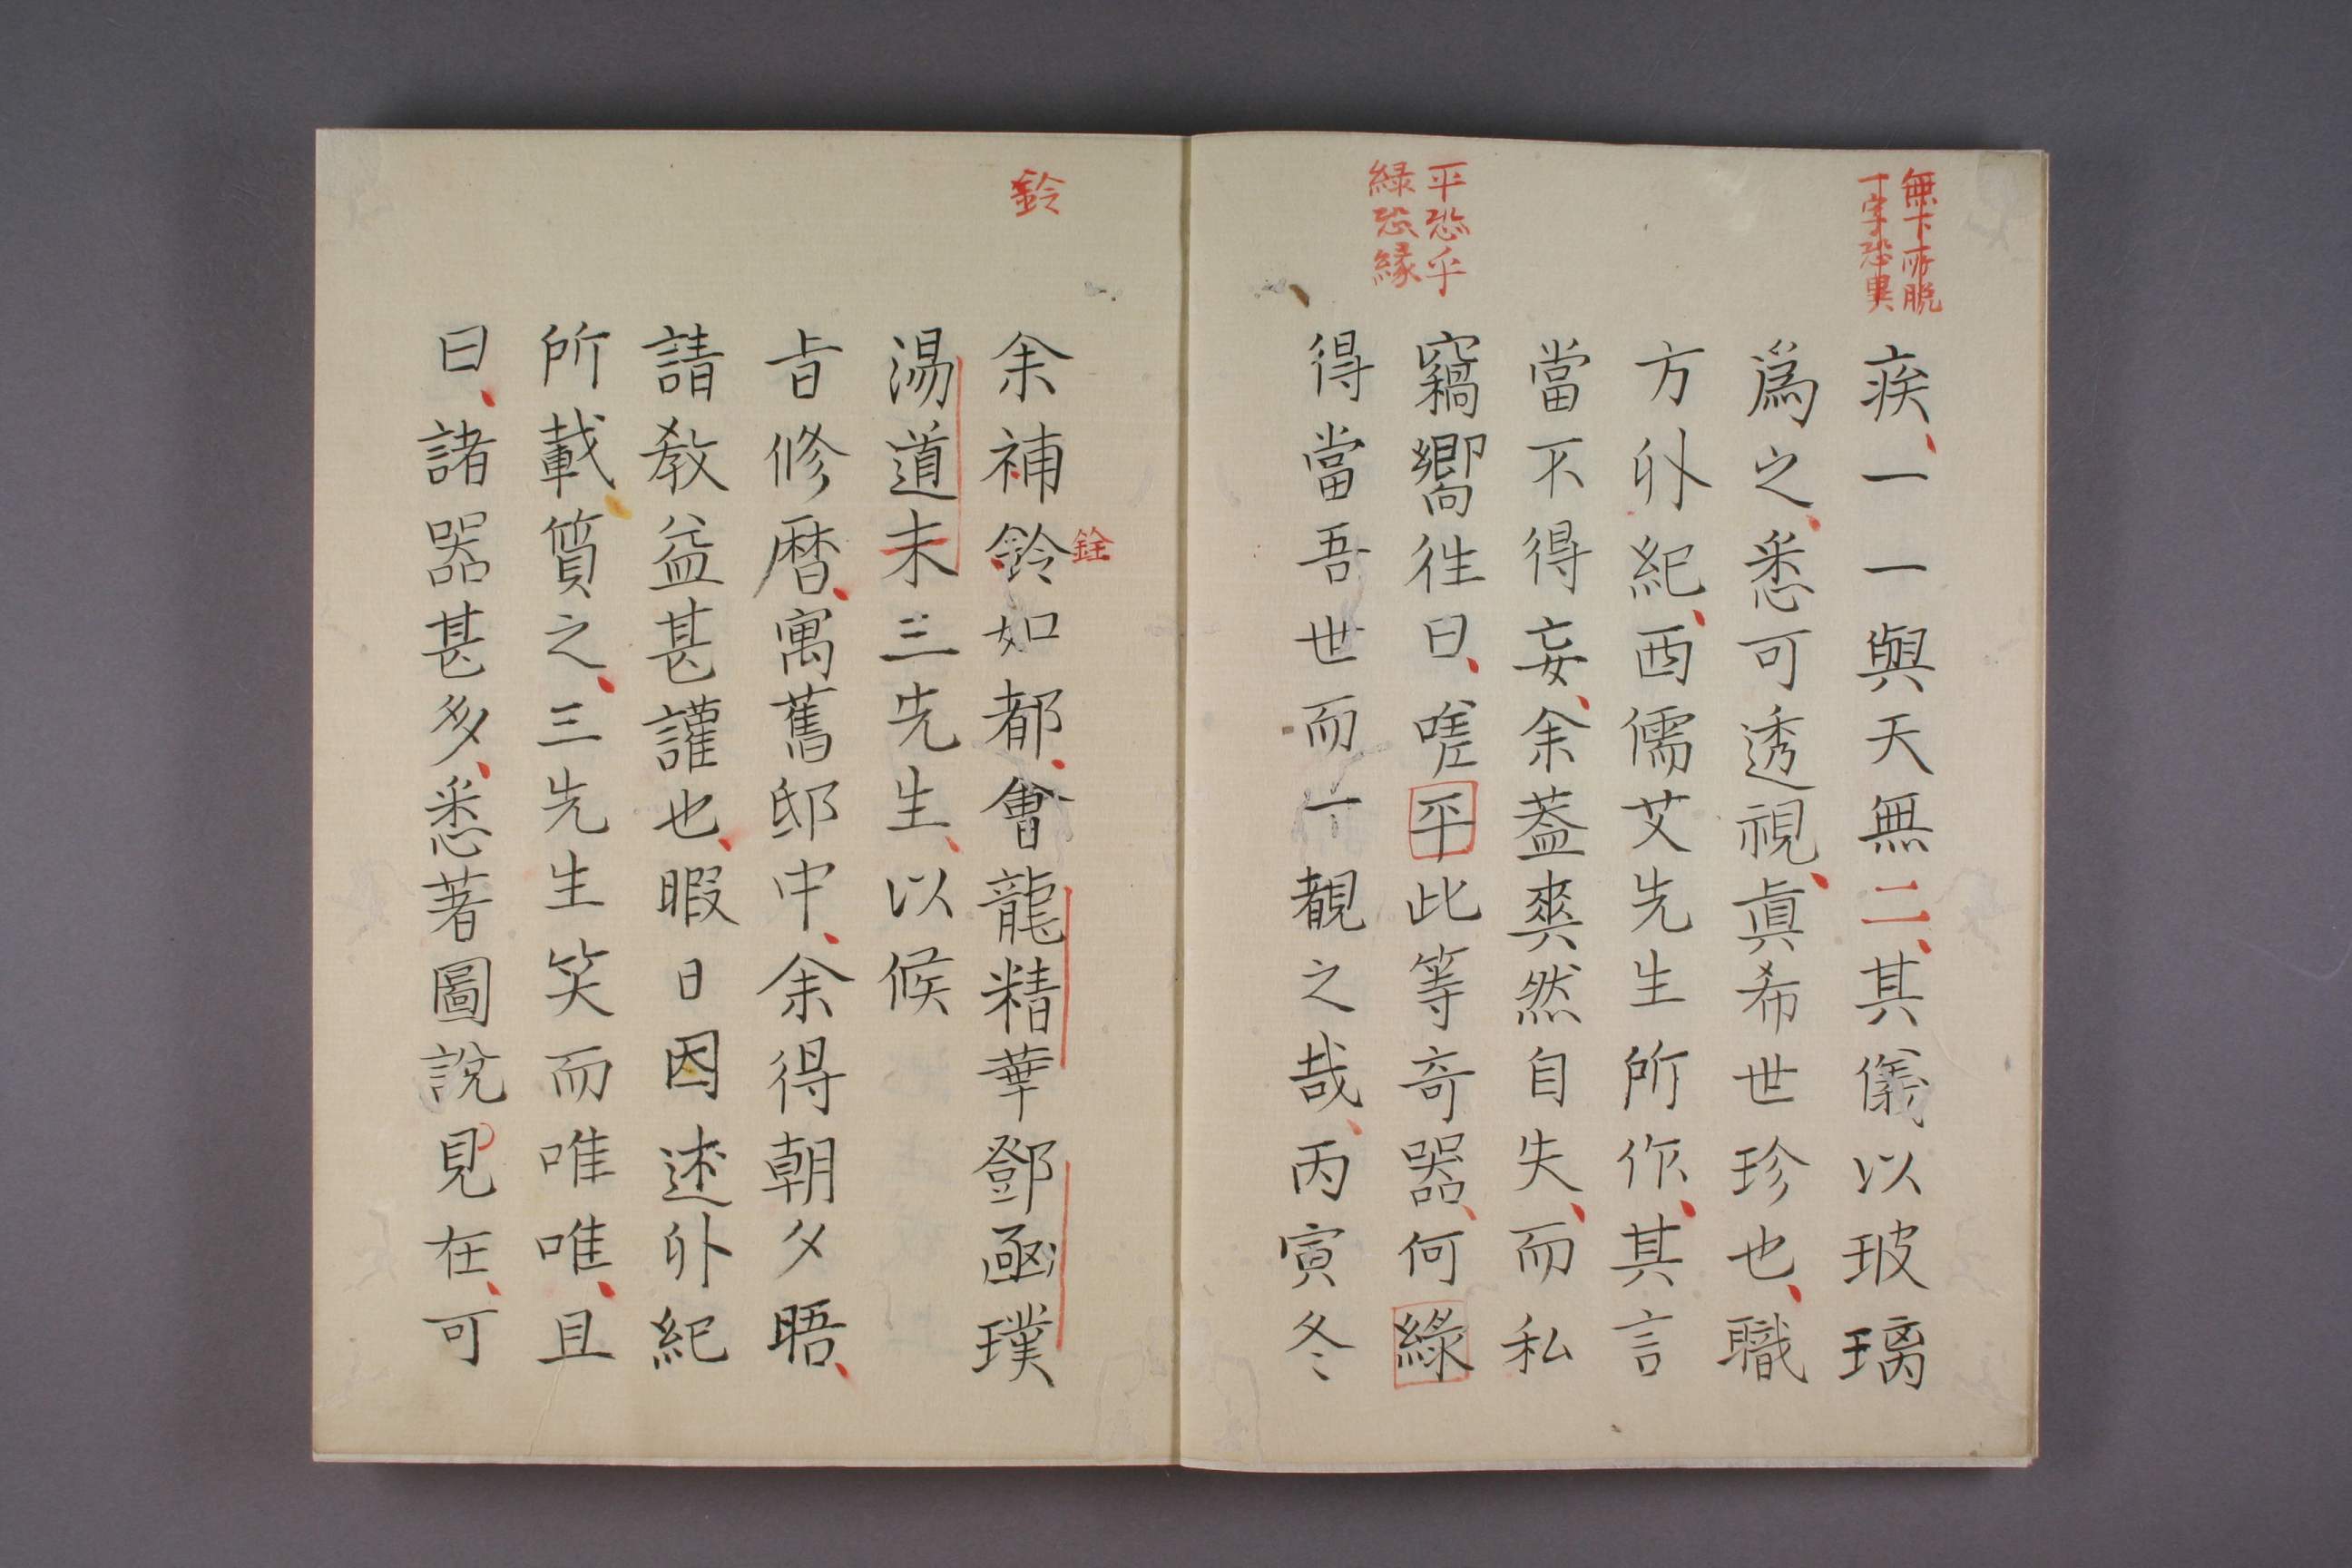 無下所脱
一字恐異
疾、一一與天無二、其儀以玻璃
爲之、悉可透視、眞希世珍也、職
方外紀、西儒艾先生所作、其言
當不得妄、余蓋爽然自失、而私
平恐乎
緑恐縁
竊嚮徃曰、嗟平此等奇器、何綠
得當吾世而一覩之哉、丙寅冬
鈴
余補鈴如都、會龍精華鄧凾璞
銓
湯道未三先生、以候
旨修曆、寓舊邸中、余得朝夕晤、
請教益甚讙也、暇日因述外紀
所載質之、三先生笑而唯唯、且
曰、諸器甚多、悉著圖說、見在、可